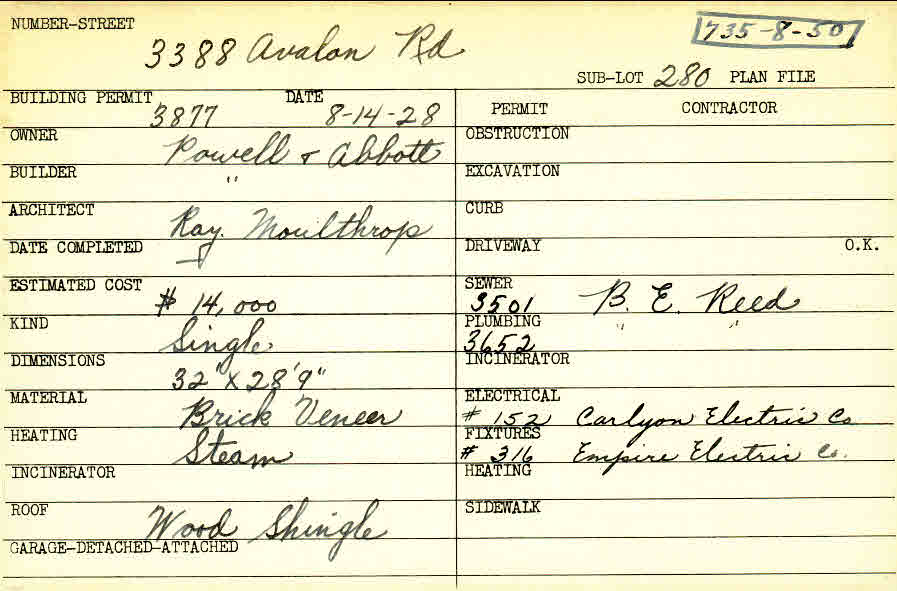 NUMBER-STREET
3388 Avalon Rd
735-8-50
SUB-LOT 280 PLAN FILE
BUILDING PERMIT 3877 DATE 8-14-28
OWNER Powell & Abbott
BUILDER "
ARCHITECT Ray Moulthrop
DATE COMPLETED
ESTIMATED COST $ 14,000
KIND Single
DIMENSIONS 32" X 28'9"
MATERIAL Brick Veneer
HEATING Steam
INCINERATOR
ROOF Wood Shingle
GARAGE-DETACHED-ATTACHED
PERMIT CONTRACTOR
OBSTRUCTION
EXCAVATION
CURB
DRIVEWAY O.K.
SEWER
3501 B. E. Reed
PLUMBING " "
3652
INCINERATOR
ELECTRICAL
# 152 Carlyon Electric Co
FIXTURES
# 316 Empire Electric Co.
HEATING
SIDEWALK